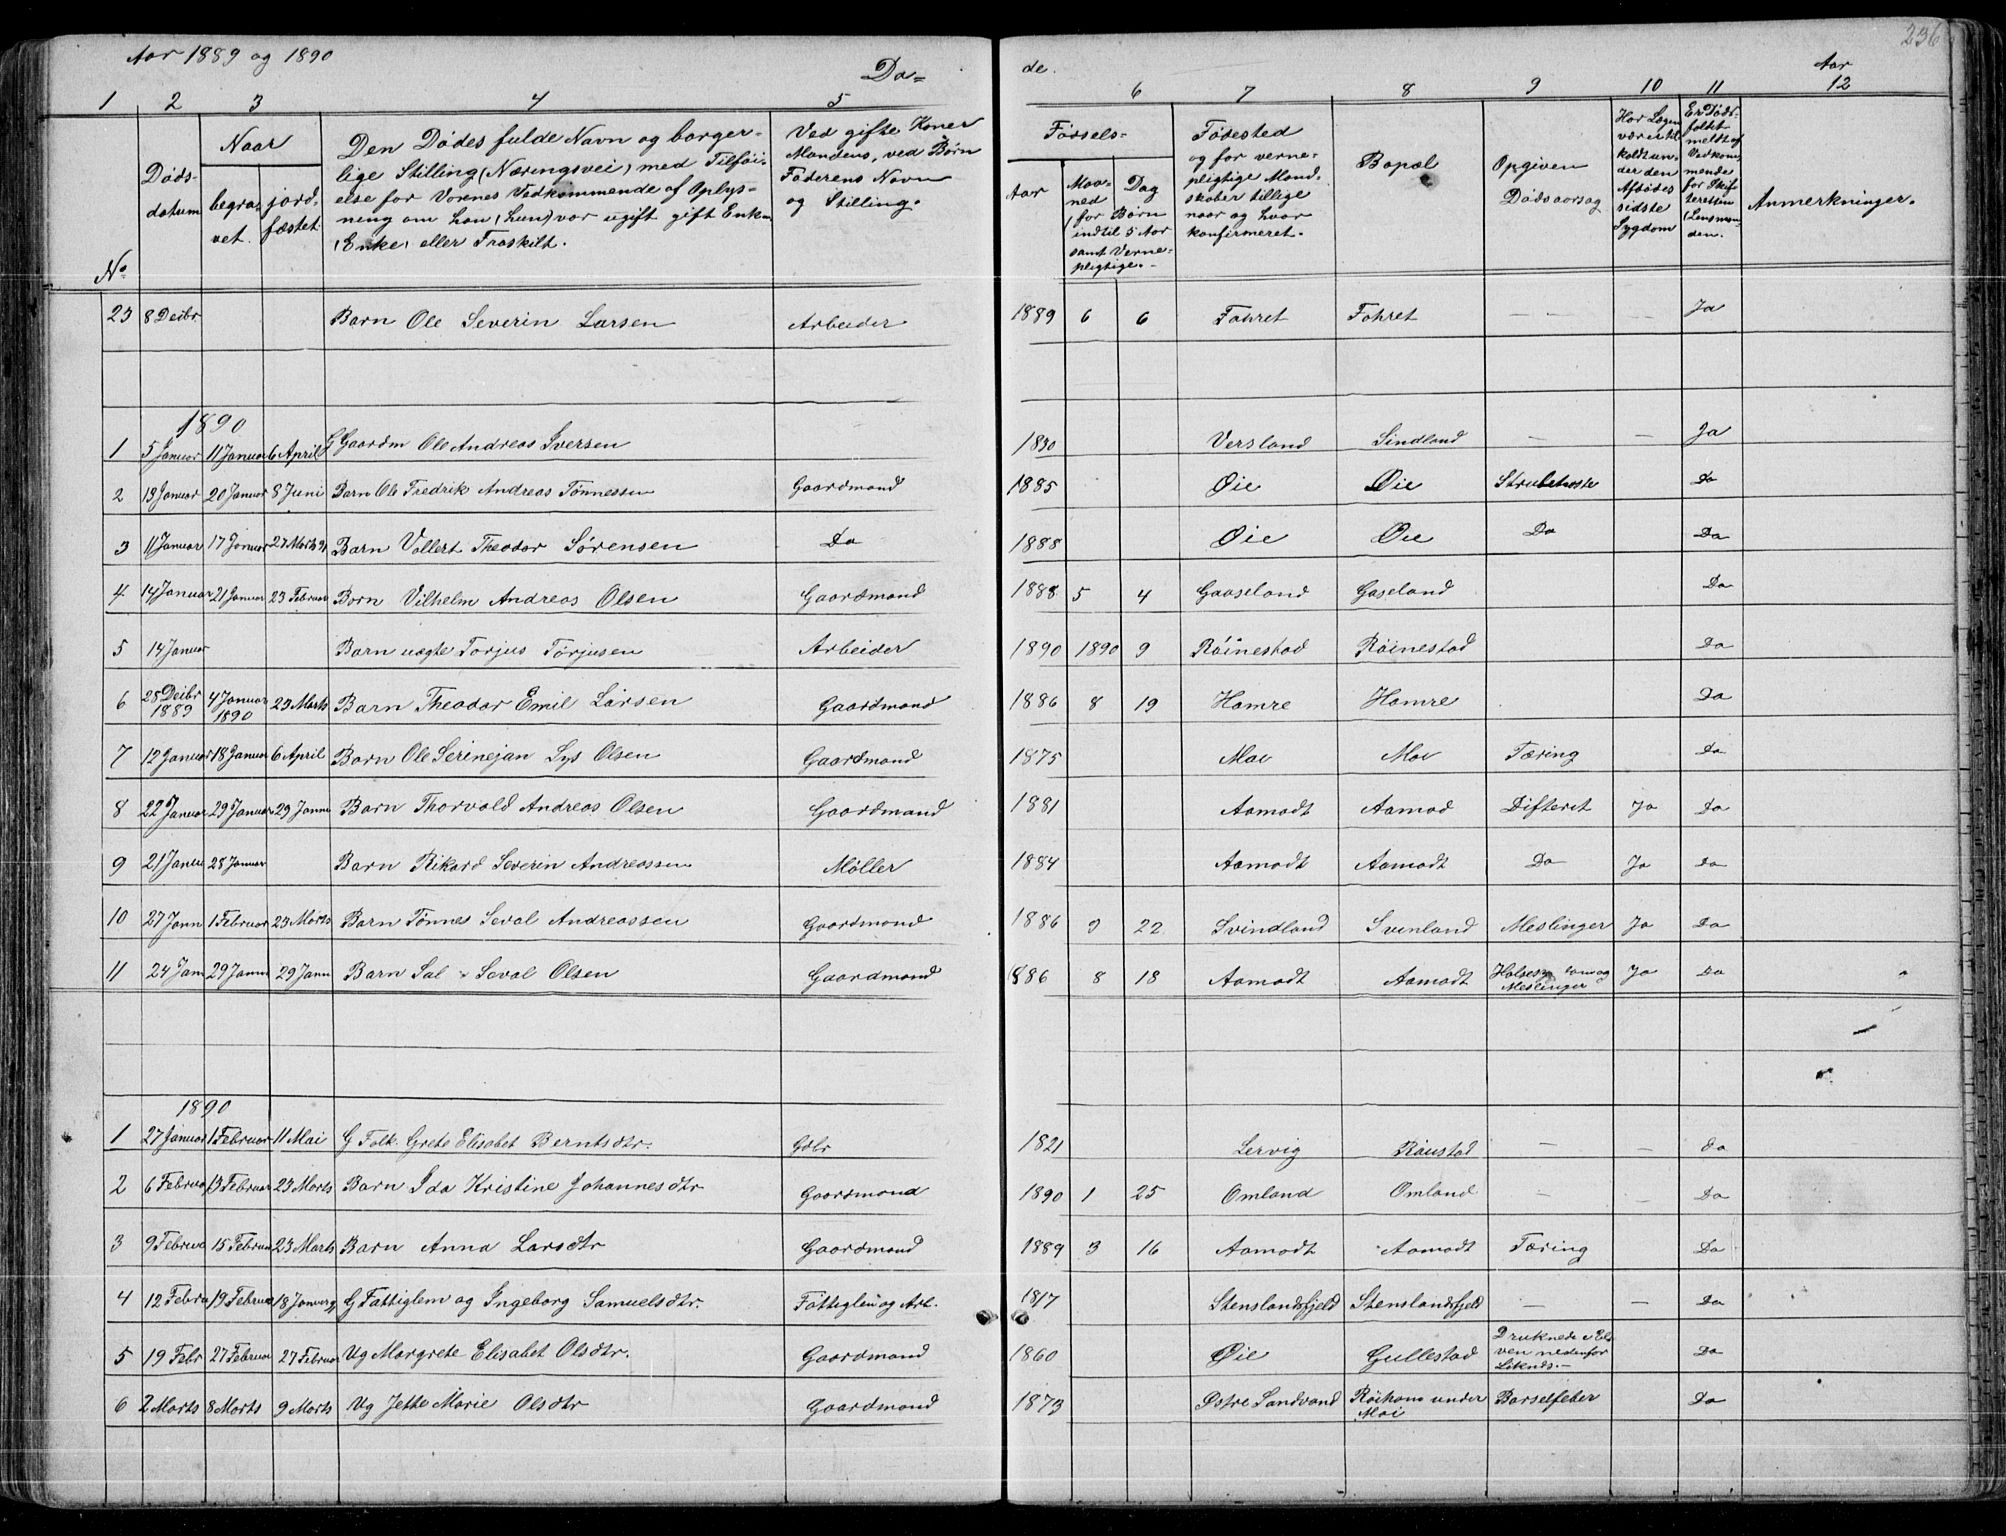 Aar 1889 og 1890
Dø=
de.
Aar
236
1 2 3 4 5 6 7 8 9 10 11 12
No
Døds-
datum
Naar
begra-
vet.
jord-
fæstet.
Den Dødes fulde Navn og borger-
lige Stilling (Næringsvei) med Tilføi-
else for Voxnes Vedkommende af Oplys-
ning om han (hun) var ugift gift Enkem
(Enke) eller Fraskilt.
Ved gifte Koner
Mandens, ved Børn
Faderens Navn
og Stilling.
Fødsels-
Aar
Maa-
ned
Dag
(for Børn
indtil 5 Aar
samt Verne-
pligtige.-
Fødested
og for verne-
pligtige Mand-
skaber tillige
naar og hvor
konfirmeret.
Bopæl
Opgiven
Dødsaarsag
Har Lægen
været til-
koldt un-
der den
Afdødes
sidste
Sygdom
Er Døds-
faldet
meldt af
Vedkom-
mende
for Skif-
teretten
(Lensman-
den.
Anmerkninger.
23 8 Deibr Barn Ole Severin Larsen Arbeider 1889 6 6 Fahret Fahret — — — Ja
1890
1 5 Januar 11 Januar 6 April G Gaardm Ole Andreas Iversen 1830 Versland Sindland — — Ja
2 13 Januar 20 Januar 8 Juni Barn Ole Fredrik Andreas Tønnessen Gaardmand 1885 Øie Øie Strubehoste Do
3 11 Januar 17 Januar 27 Marts 91 Barn Vollert Theodor Sørensen Do 1888 Øie Øie Do Do
4 14 Januar 21 Januar 23 Februar Barn Vilhelm Andreas Olsen Gaardmand 1888 5 4 Gaaseland Gaseland Do
5 14 Januar Barn uægte Torjus Tørjusen Arbeider 1890 1890 9 Røinestad Røinestad Do
6 28 Deibr 1889 4 Januar 1890 23 Marts Barn Theodor Emil Larsen Gaardmand 1886 8 19 Hamre Hamre Do
7 12 Januar 18 Januar 6 April Barn Ole Serinejan Lys Olsen Gaardmand 1875 Moi Moi Tæring Do
8 22 Januar 29 Januar 29 Janua Barn Thorvald Andreas Olsen Gaardmand 1881 Aamodt Aamod Difteret Ja Do
9 21 Janua 28 Januar Barn Rikard Severin Andreassen Møller 1884 Aamodt Aamodt Do Ja Do
10 27 Jann 1 Februar 23 Marts Barn Tønnes Seval Andreassen Gaardmand 1886 9 22 Svindland Svinland Meslinger Ja Do
11 24 Jann 29 Janua 29 Jann Barn Sal Seval Olsen Gaardmand 1886 8 18 Aamodt Aamodt Meslinger Ja Do
1890
1 27 Januar 1 Februar 11 Mai G Folk. Grete Elisabet Berntsdtr. Gdbr 1821 Lervig Røiustad — — Do
2 6 Februa 13 Februar 23 Marts Barn Ida Kristine Johannesdtr Gaardmand 1890 1 25 Omland Omland — — Do
3 9 Februa 15 Februa 23 Marts Barn Anna Larsdtr Gaardmand 1889 3 16 Aamodt Aamodt Tæring Do
4 12 Febra 19 Februa 18 Janvar 91 G Fattiglem og Ingeborg Samuelsdtr. Fattiglem og Arb. 1817 Stenslandsfjeld Stenslandsfjeld — — Do
5 19 Febr 27 Februar 27 Februar Ug Margrete Elisabet Olsdtr. Gaardmand 1860 Øie Gullestad Druknede i El-
ven nedenfor
Liknds.- Do
6 2 Marts 8 Marts 9 Marts Ug Jette Marie Olsdtr Gaardmand 1873 Østre Sandvand Røikom under
Moi Barselfeber Do